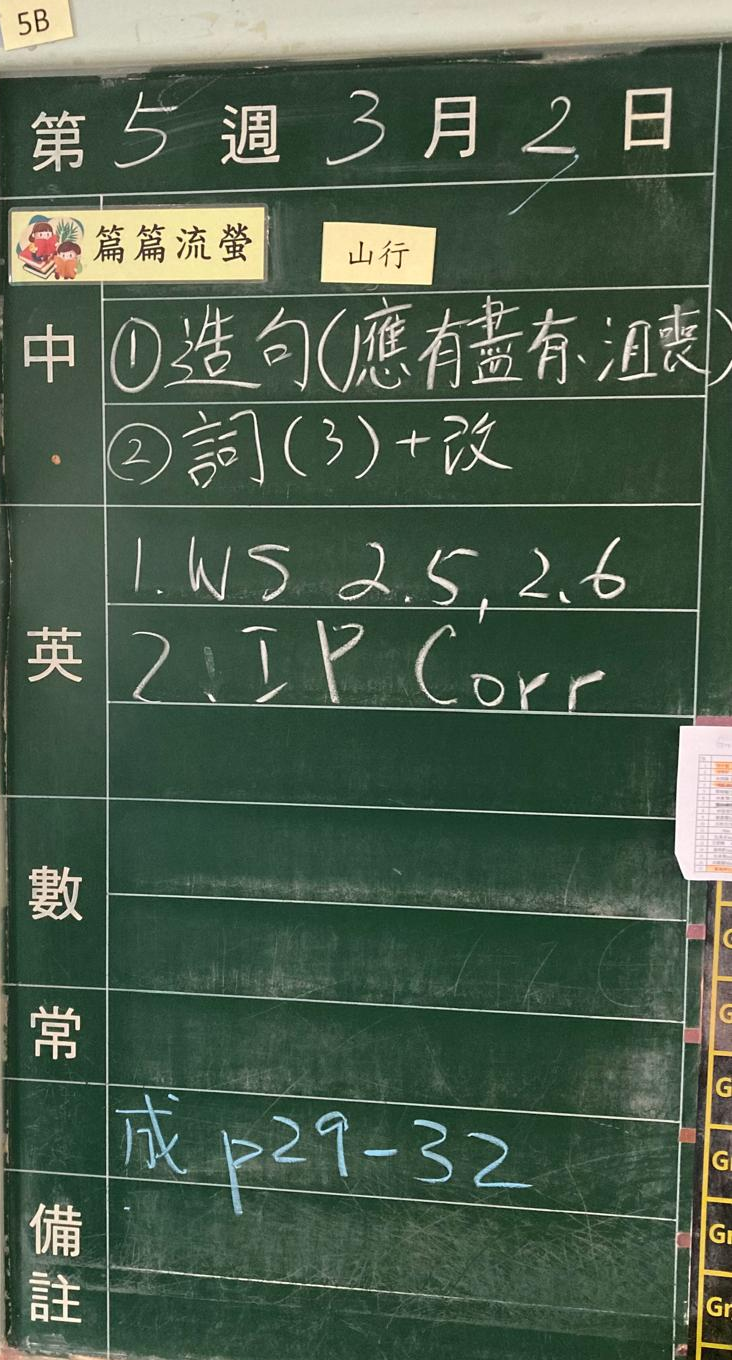 5B
第 5 週 3 月 2 日
篇篇流螢 山行
中
①造句(應有盡有、沮喪)
②詞(3)+改
英
1. WS 2.5, 2.6
2. IP Corr
數
常
成 p29-32
備註
G
G
G
Gr
Gr